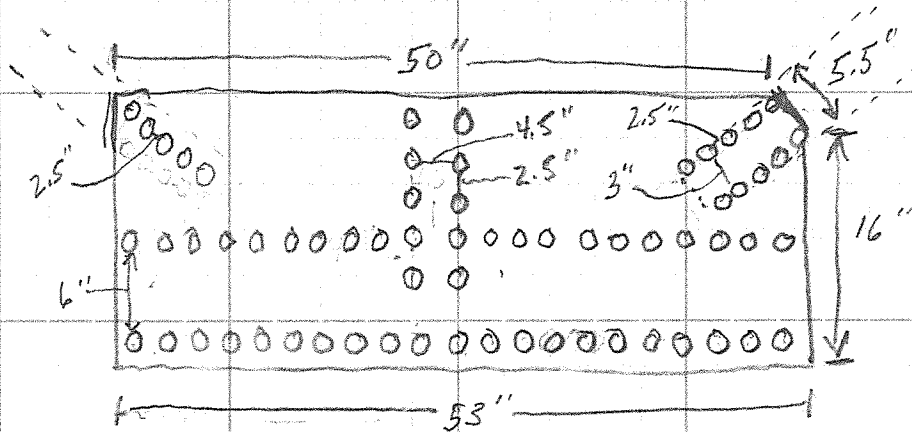 50"
5.5"
4.5"
2.5"
2.5"
2.5"
3"
16"
6"
53"